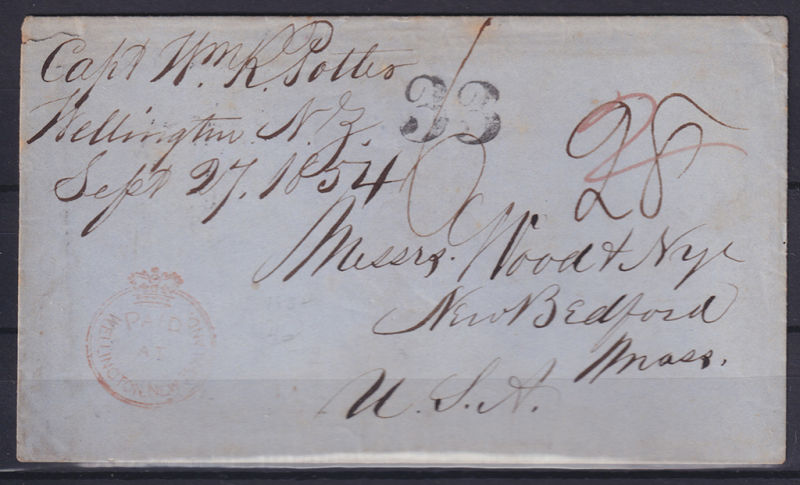 Capt Wm. K. Potter
Wellington. N.Z.
Sept 27. 1854
33
6
2
28
Messrs. Wood & Nye
New Bedford
Mass.
U. S. A.
PAID
AT
WELLINGTON NEW ZEALAND